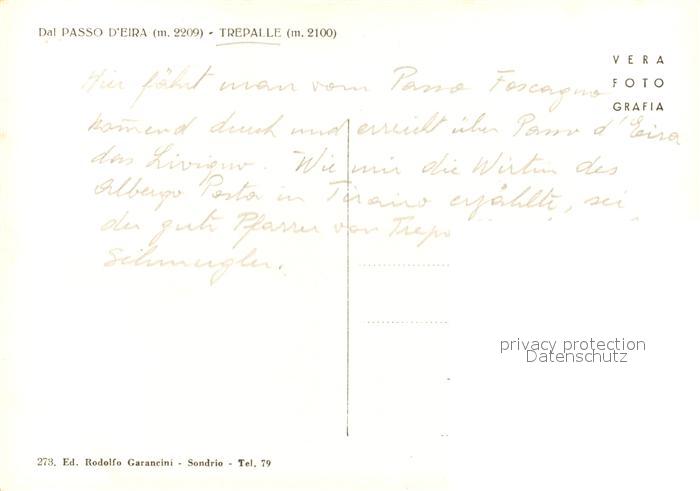 Dal PASSO D'EIRA (m. 2209) - TREPALLE (m. 2100)
VERA
FOTO
GRAFIA
Hier fährt man vom Passo Foscagno
kom̄end durch und erreicht über Passo d'Eira
das Livigno. Wie mir die Wirtin des
Albergo Posta in Tirano erzählte, sei
der gute Pfarrer von Trepa
Schmuggler.
privacy protection
Datenschutz
273. Ed. Rodolfo Garancini - Sondrio - Tel. 79